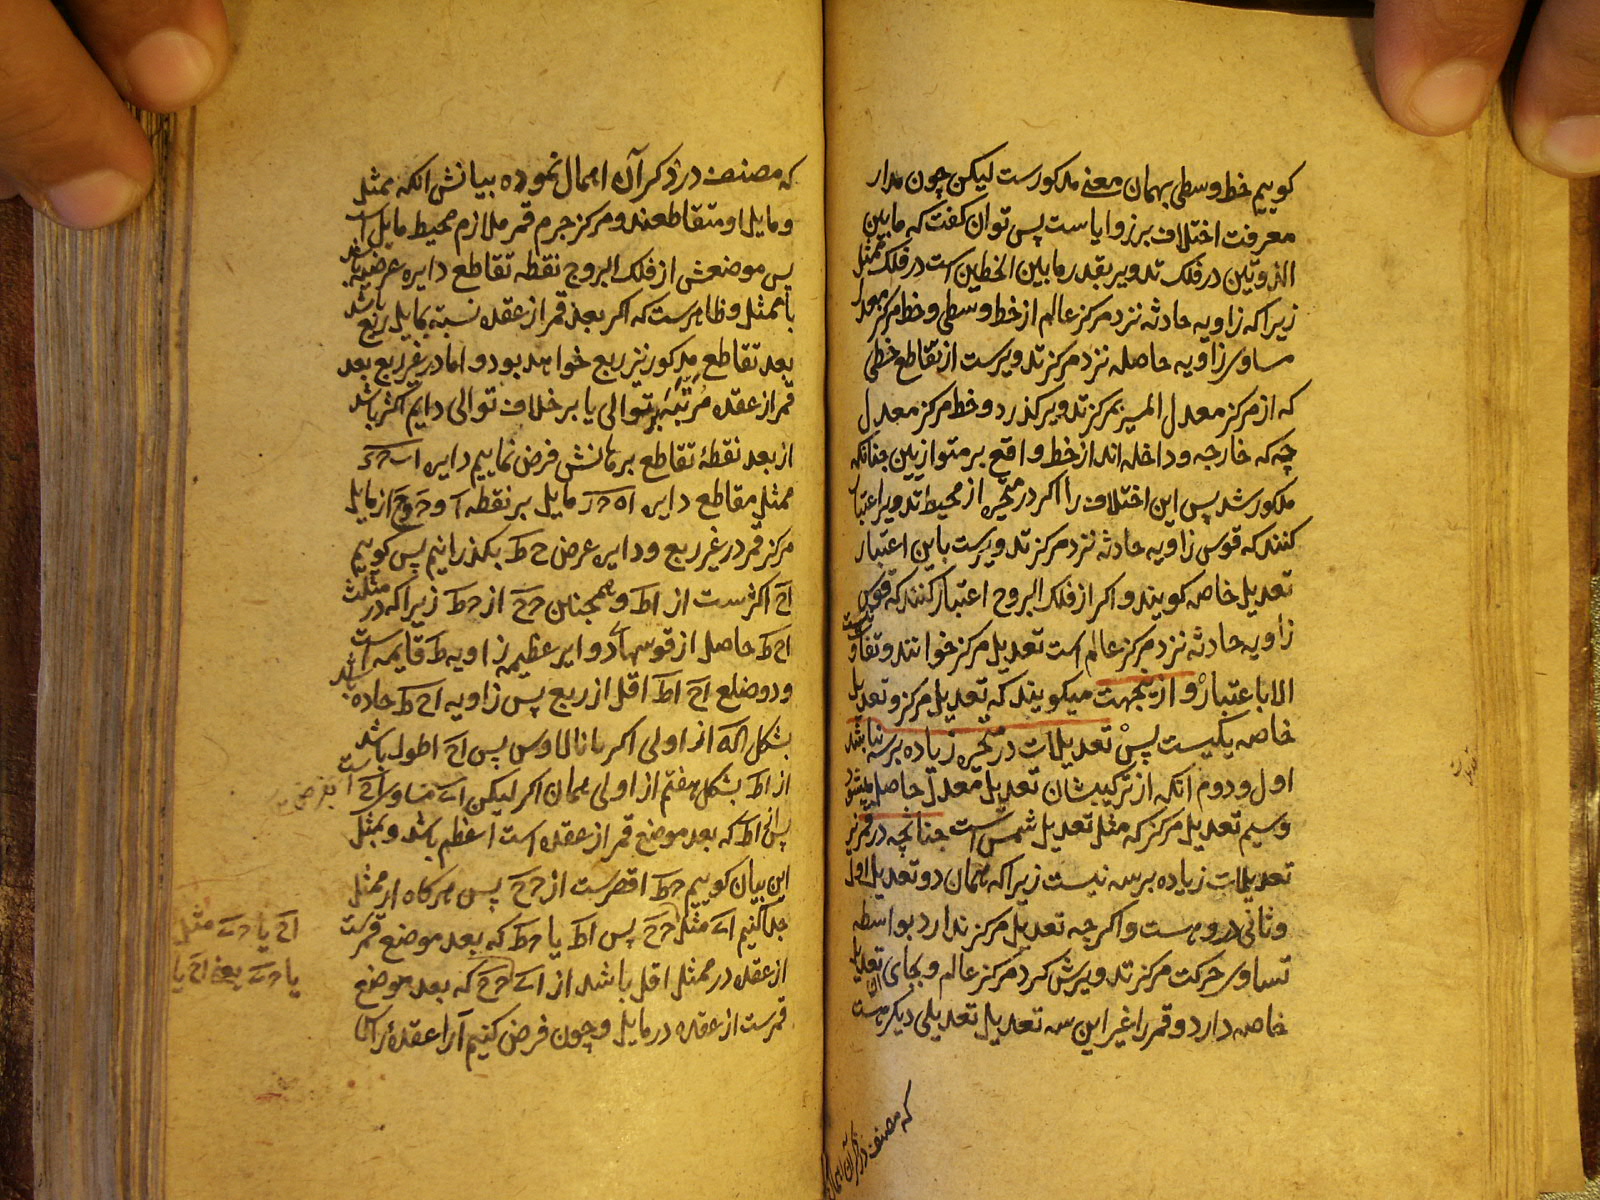 کوییم خط وسطی بهمان معنے مذکورست لیکن چون مدار
معرفت اختلاف بر زوایاست پس توان کفت که مابین
الذروتین در فلک تدویر بقدر مابین الخطین است در فلک ممثل
زیراکه زاویه حادثه نزد مرکز عالم از خط وسطی و خط مرکز معدل
مساوی زاویه حاصله نزد مرکز تدویرست از تقاطع خطی
که از مرکز معدل المسیر بمرکز تدویر کذرد و خط مرکز معدل
چه که خارجه و داخله اند از خط واقع بر متوازیین جنانکه
مذکور شد پس این اختلاف را اکر در متحیره از محیط تدویر اعتبار
کنند که قوس زاویه حادثه نزد مرکز تدویرست باین اعتبار
تعدیل خاصه کویند و اکر از فلک البروج اعتبار کنند که قوس
زاویه حادثه نزد مرکز عالم است تعدیل مرکز خوانند و تفاوت نیست
الا باعتبار و ازینجهت میکویند که تعدیل مرکز و تعدیل
خاصه یکیست پس تعدیلات در متحیره زیاده بر سه نباشد
اول و دوم انکه از ترکیبشان تعدیل معدل حاصل میشود
و سیم تعدیل مرکز که مثل تعدیل شمس است جنانچه در قمر نیز
تعدیلات زیاده بر سه نیست زیراکه همان دو تعدیل اول
و ثانی درو هست و اکرچه تعدیل مرکز ندارد بواسطه
تساوی حرکت مرکز تدویرش کرد مرکز عالم و بجای تعدیل
خاصه دارد و قمر را غیر این سه تعدیل تعدیلی دیکر هست
که مصنف در ذکر آن اهمال
که مصنف در ذکر آن اهمال نموده بیانش انکه ممثل
و مایل او متقاطعند و مرکز جرم قمر ملازم محیط مایل است
پس موضعش از فلک البروج نقطه تقاطع دایره عرضیه باشد
با ممثل و ظاهرست که اکر بعد قمر از عقده نسبت بمایل ربع باشد
بعد تقاطع مذکور نیز ربع خواهد بود و اما در غیر ربع بعد
قمر از عقده مرتبة بر توالی یا بر خلاف توالی دایم اکثر باشد
از بعد نقطهٔ تقاطع برهانش فرض نماییم دایره
ممثل مقاطع دایره مایل بر نقطه از مایل
مرکز قمر در غیر ربع و دایره عرض ح ط بکذرانیم پس کوییم
اح اکثرست از اط و همچنین ح از ط زیراکه در مثلث
اح ط حاصل از قوسهای دوایر عظیمه زاویه ط قایمه است
و دو ضلع اح اط اقل از ربع پس زاویه اح ط حاده باشد
بشکل از اولی اکر مانالاوس پس اح اطول باشد
از اط بشکل هفتم از اولی همان اکر لیکن مساوی اح است
پس از اط که بعد موضع قمر از عقده است اعظم باشد و بمثل
این بیان کوییم ط اقصرست از ح پس هرکاه از ممثل
جدا کنیم مثل ح پس اط یا ط که بعد موضع قمرست
از عقده در ممثل اقل باشد از که بعد موضع
قمرست از عقده در مایل و چون فرض کنیم آ را عقدهٔ راس